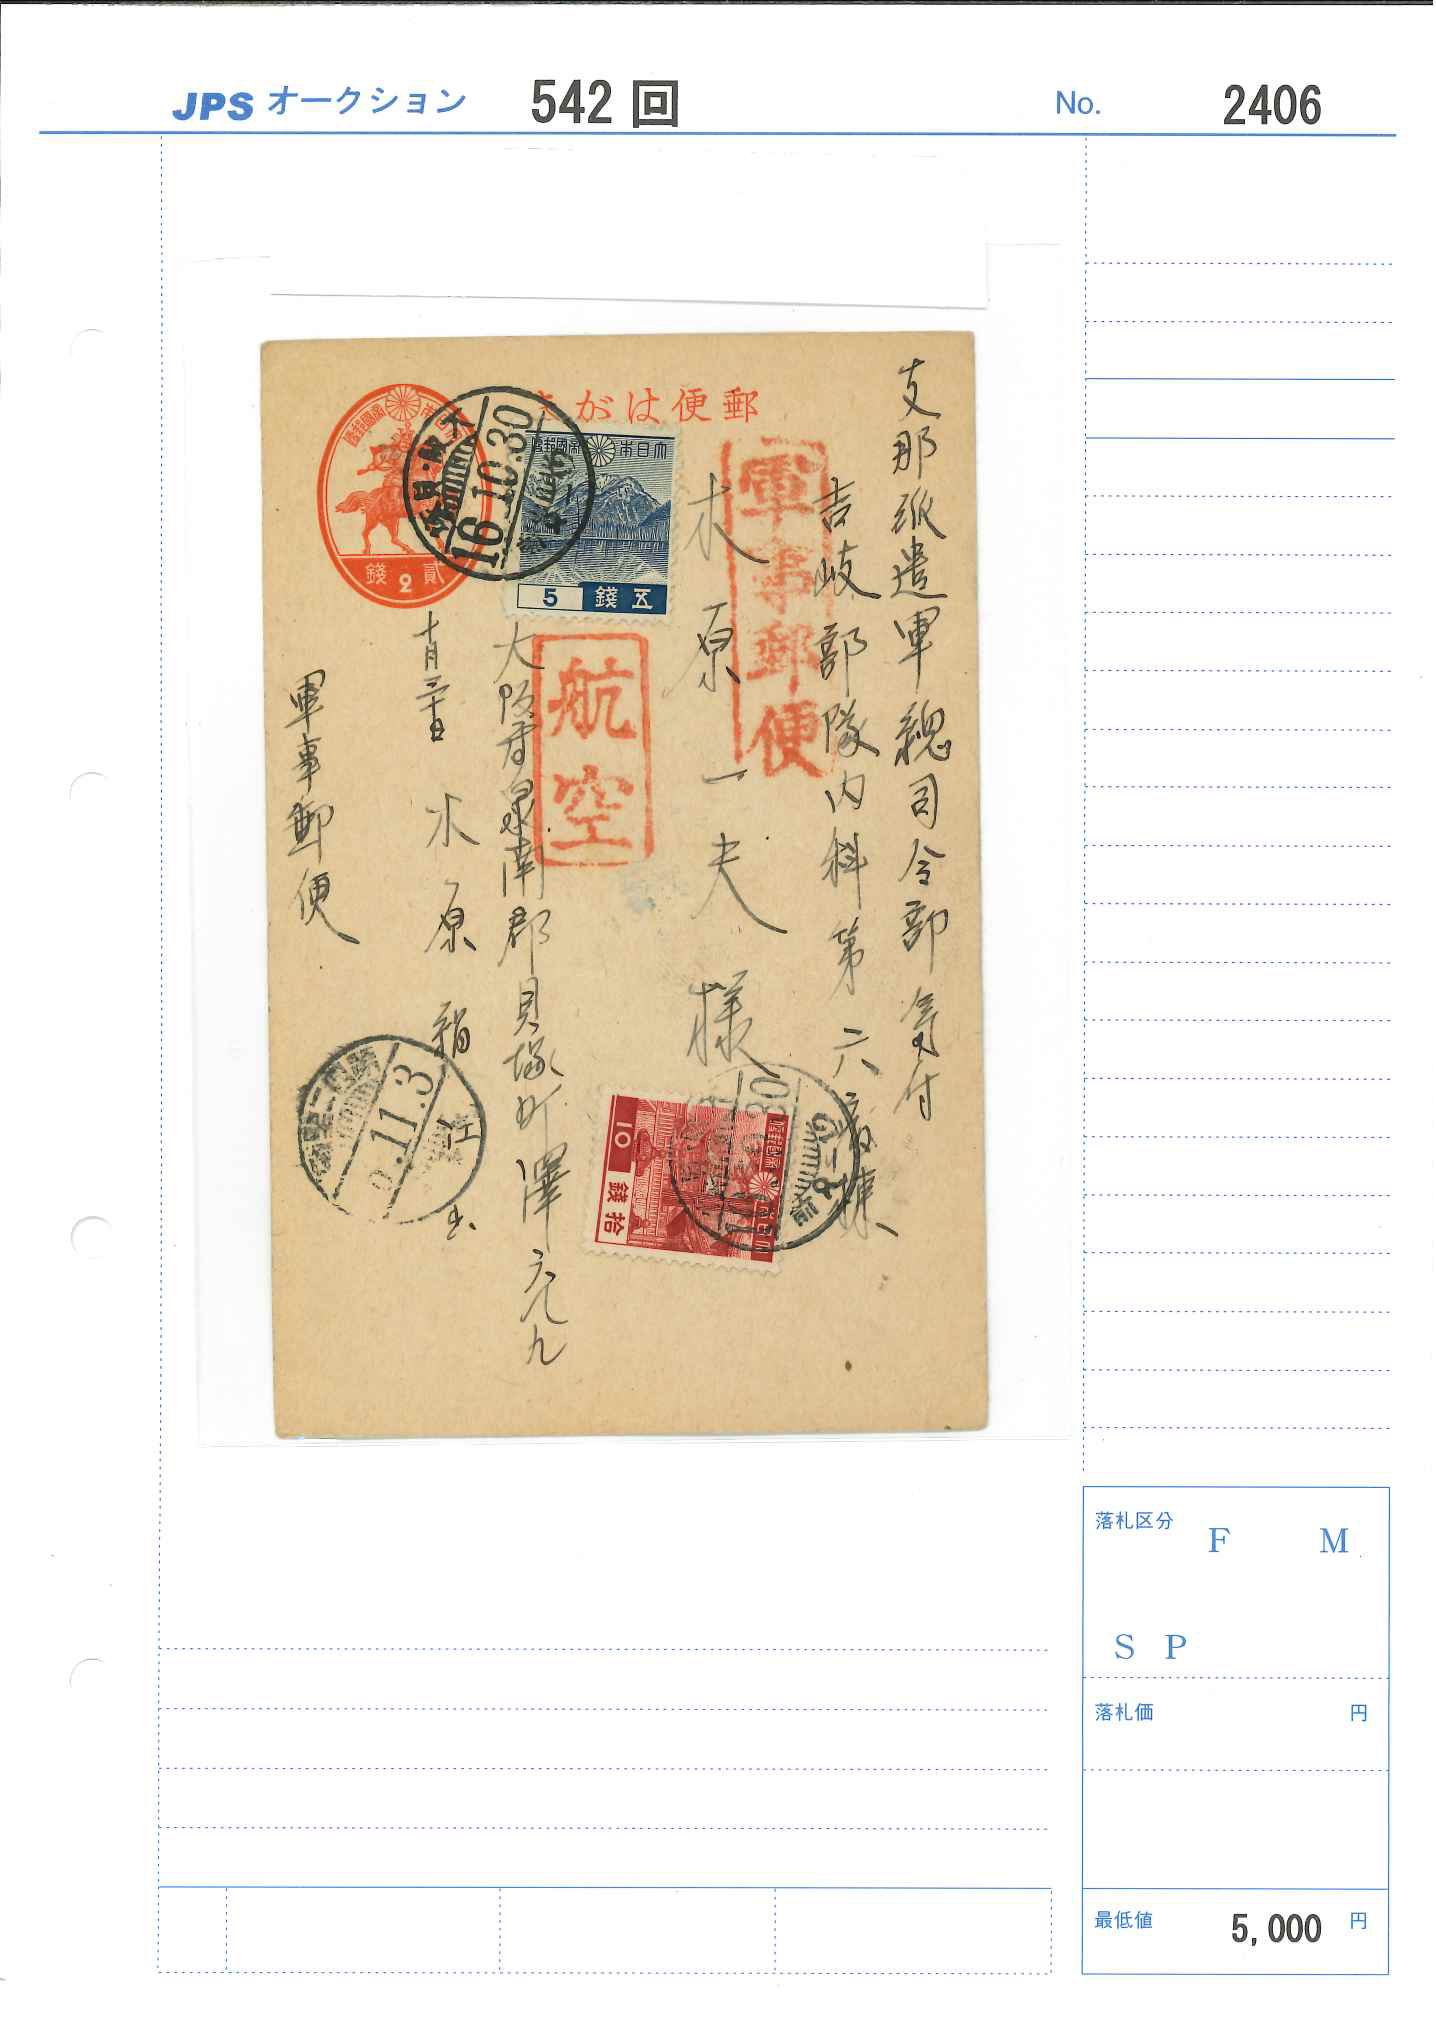 JPS オークション 542 回 No. 2406
郵便はがき
大日本帝國郵便
貳 2 錢
大日本帝國郵便
5 五錢
16.10.30
軍事郵便
航空
支那派遣軍總司令部氣付
吉岐部隊内科第六病棟
木原一夫様
大阪府泉南郡貝塚町澤六九
十月三十日
木原
軍事郵便
.11.3
10 拾錢
落札区分 F M
S P
落札価 円
最低値 5,000 円